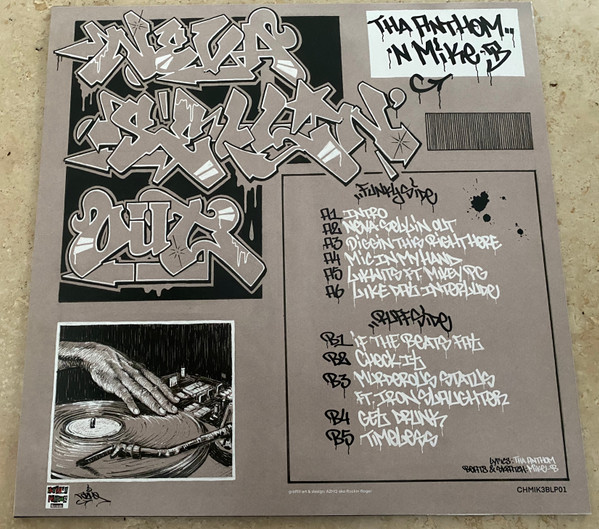 NEVA
SELLIN
OUT
THA ANTHOM..
'N MIKE.B
FUNKY SIDE
A1 INTRO
A2 NEVA SELLIN OUT
A3 DIGGIN THIS RIGHT HERE
A4 MIC IN MY HAND
A5 LIKWITS FT. MIKEY PG
A6 LIKE DAT INTERLUDE
RUFF SIDE
B1 IF THE BEATS FAT
B2 CHECK IT
B3 MURDEROUS STATUS
FT. IRON SLAUGHTER
B4 GET DRUNK
B5 TIMELESS
LYRICS: THA ANTHOM
BEATS & SCRATCH: MIKE.B
graffiti art & design:
aka Rocket Roger
CHMIK3BLP01